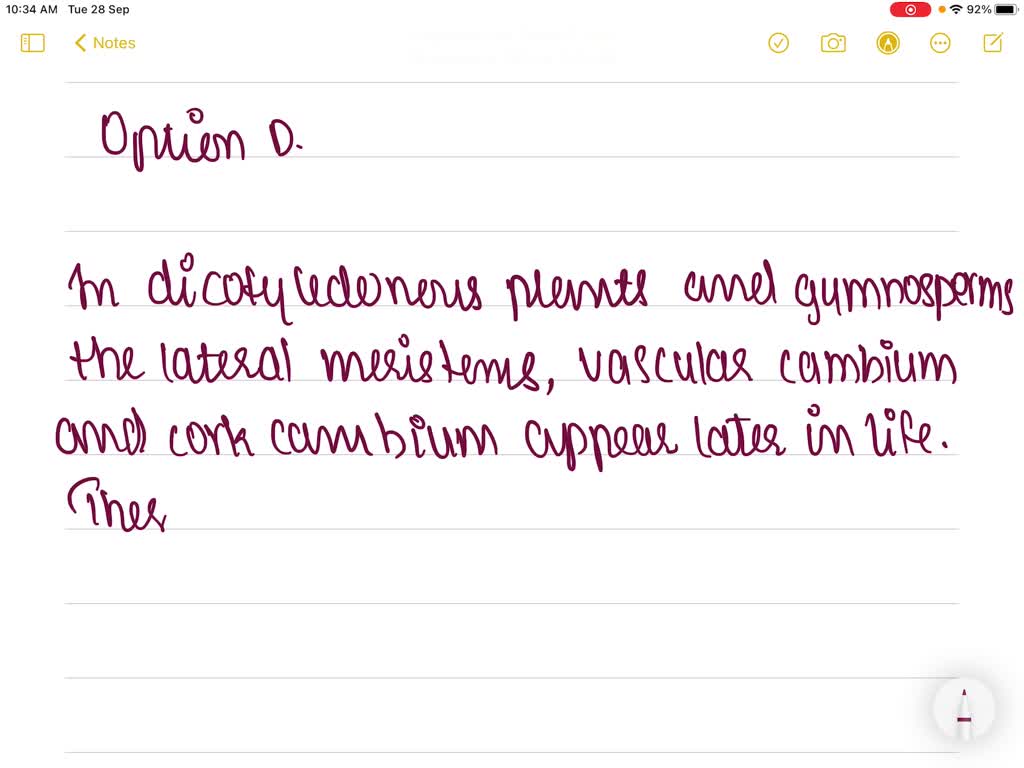 10:34 AM Tue 28 Sep
92%
Notes
Option D.
In dicotyledonous plants and gymnosperms
the lateral meristems, vascular cambium
and cork cambium appear later in life.
Thes